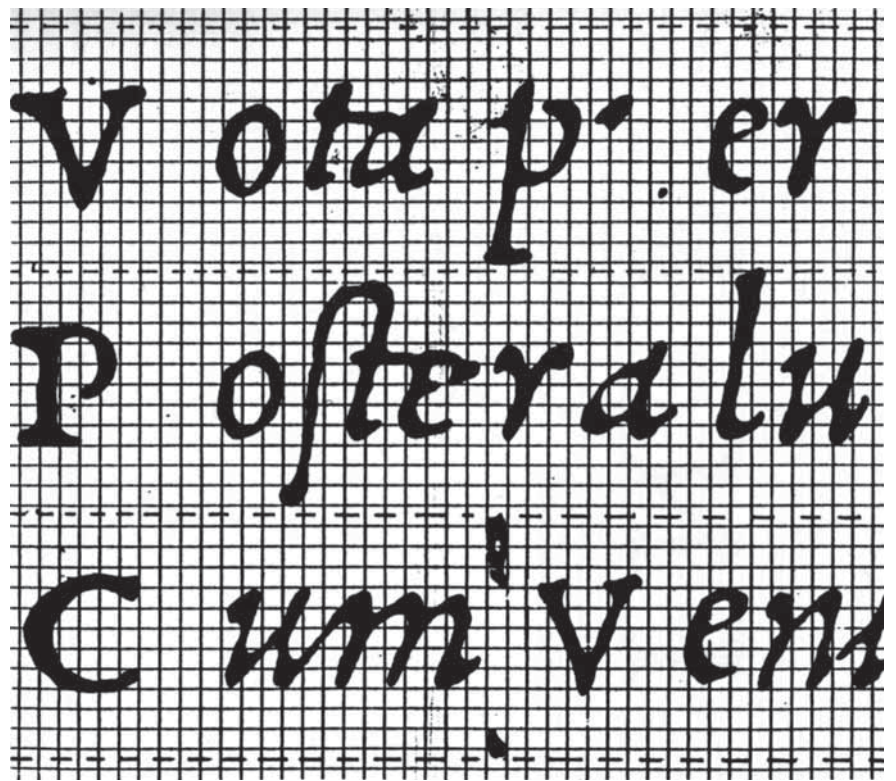 V ota p· er
P oſtera lu
C um V en